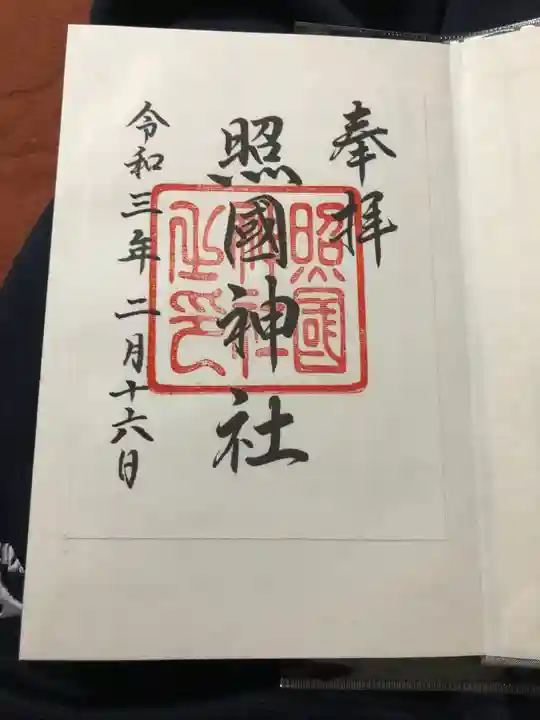 奉拝
照國神社
照国神社之印
令和三年二月十六日